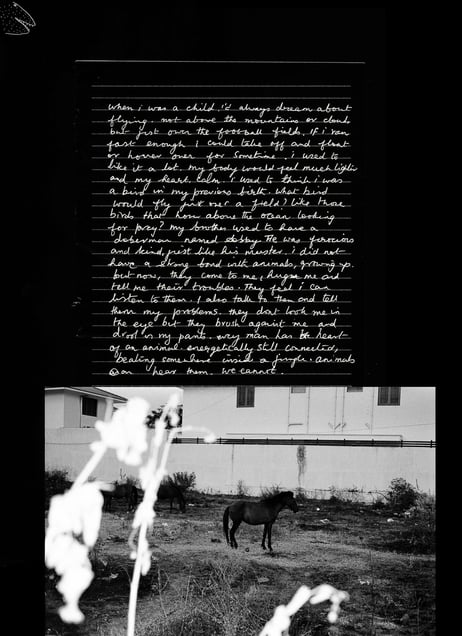 when i was a child, i'd always dream about
flying. not above the mountains or clouds
but just over the football fields. If i ran
fast enough i could take off and float
or hover over for sometime. i used to
like it a lot. my body would feel much lighter
and my heart, calm. i used to think i was
a bird in my previous birth. what bird
would fly just over a field? like those
birds that hover above the ocean looking
for prey? my brother used to have a
doberman named He was ferocious
and kind, just like his master. i did not
have a strong bond with animals, growing up.
but now, they come to me, hug me and
tell me their troubles. they feel i can
listen to them. I also talk to them and tell
them my problems. they dont look me in
the eye but they brush against me and
drool on my pants. every man has heart
of an animal. energetically still connected,
beating somewhere inside a jungle. animals
can hear them. we cannot.